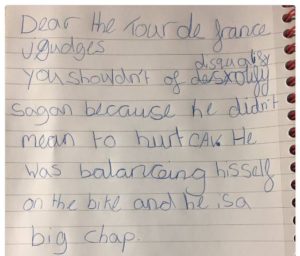 Dear the Tour de france
Jgudges
you shouldn't of disqualify
sagan because he didn't
mean to hurt CAV. He
was balanceing hisself
on the bike and he is a
big chap.